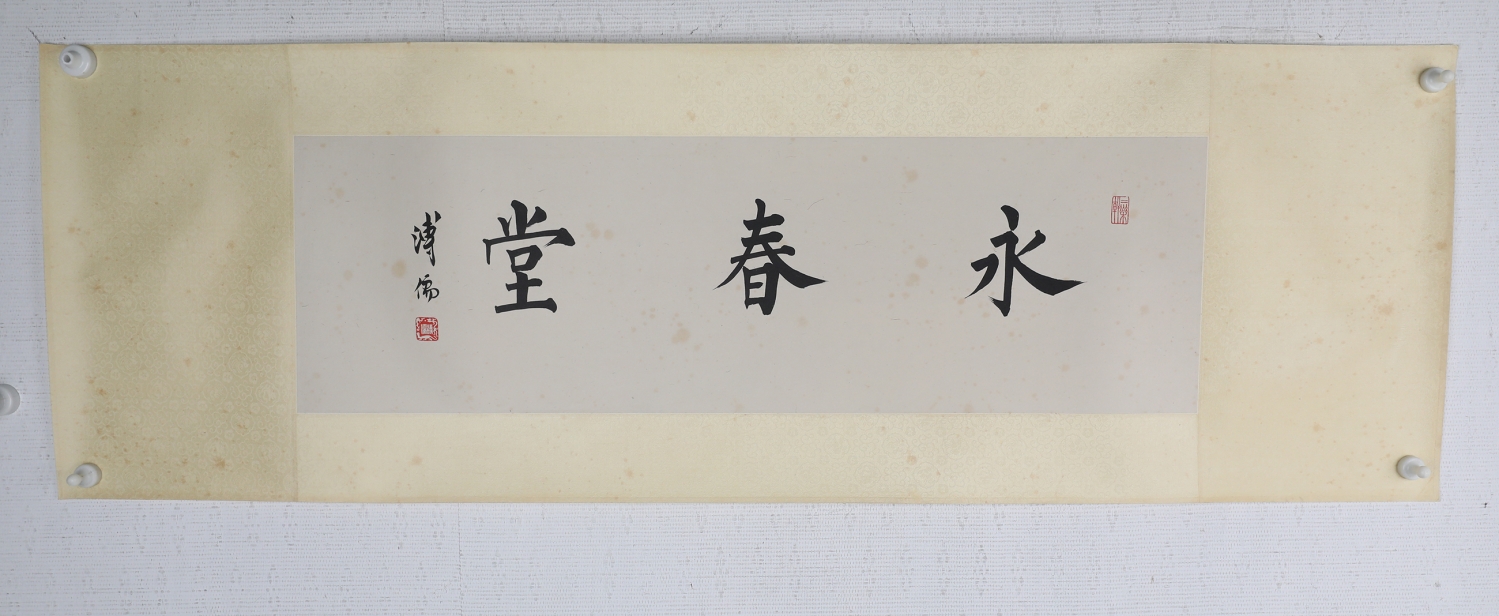 永春堂
溥儒